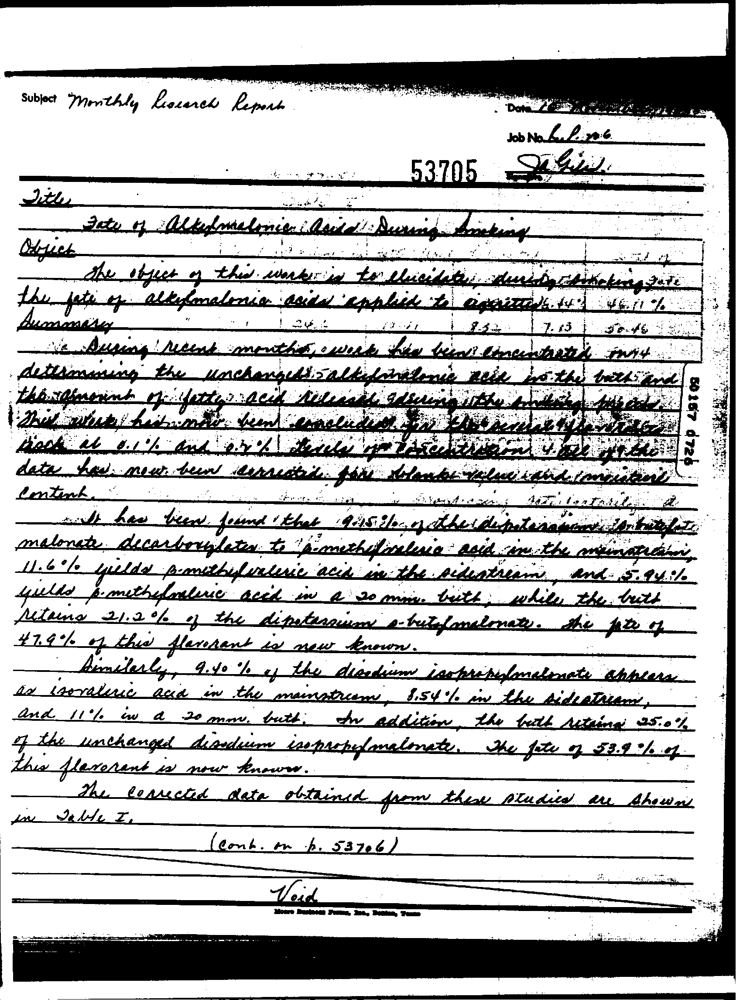 Subject Monthly Research Report
Date 16
Job No. L.P. 706
53705
Title
Fate of Alkylmalonic Acids During Smoking
Object
The object of this work is to elucidate during smoking
the fate of alkylmalonic acids applied to cigarettes. 46.11%
Summary 8.52 7.13 50.46
During recent months, work has been concentrated on
determining the unchanged alkylmalonic acid in the butt and
the amount of fatty acid released during the smoking process.
This work has now been concluded for the several flavorants
each at 0.1% and levels of concentration. All of the
data has now been corrected for blank value and moisture
content.
It has been found that 9.15% of the dipotassium s-butyl
malonate decarboxylates to β-methylvaleric acid in the mainstream,
11.6% yields β-methylvaleric acid in the sidestream, and 5.94%
yields β-methylvaleric acid in a 20 mm. butt, while the butt
retains 21.2% of the dipotassium s-butylmalonate. The fate of
47.9% of this flavorant is now known.
Similarly, 9.40% of the disodium isopropylmalonate appears
as isovaleric acid in the mainstream, 8.54% in the sidestream,
and 11% in a 20 mm. butt. In addition, the butt retains 25.0%
of the unchanged disodium isopropylmalonate. The fate of 53.9% of
this flavorant is now known.
The corrected data obtained from these studies are shown
in Table I.
(cont. on p. 53706)
Void
Moore Business Forms, Inc., Denton, Texas
50157 0726